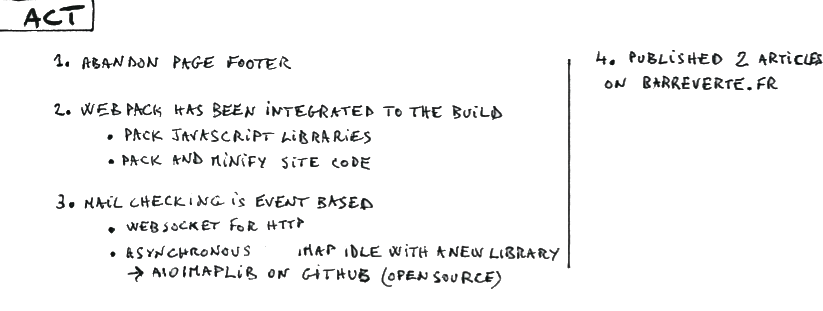 ACT
1. ABANDON PAGE FOOTER
2. WEBPACK HAS BEEN INTEGRATED TO THE BUILD
• PACK JAVASCRIPT LIBRARIES
• PACK AND MINIFY SITE CODE
3. MAIL CHECKING IS EVENT BASED
• WEBSOCKET FOR HTTP
• ASYNCHRONOUS IMAP IDLE WITH A NEW LIBRARY
→ AIOIMAPLIB ON GITHUB (OPEN SOURCE)
4. PUBLISHED 2 ARTICLES
ON BARREVERTE.FR